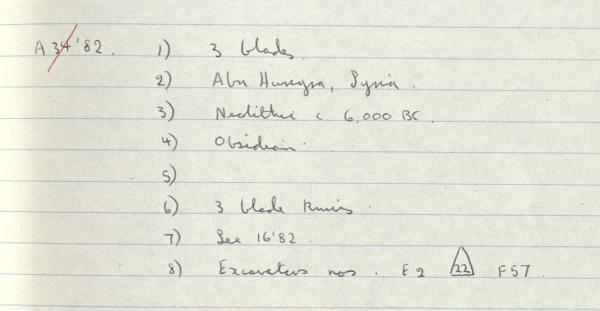 A 34'82. 1) 3 blades.
2) Abu Hureyra, Syria.
3) Neolithic c 6,000 BC.
4) Obsidian.
5)
6) 3 blade knives.
7) See 16'82.
8) Excavators nos. E2 22 F57.